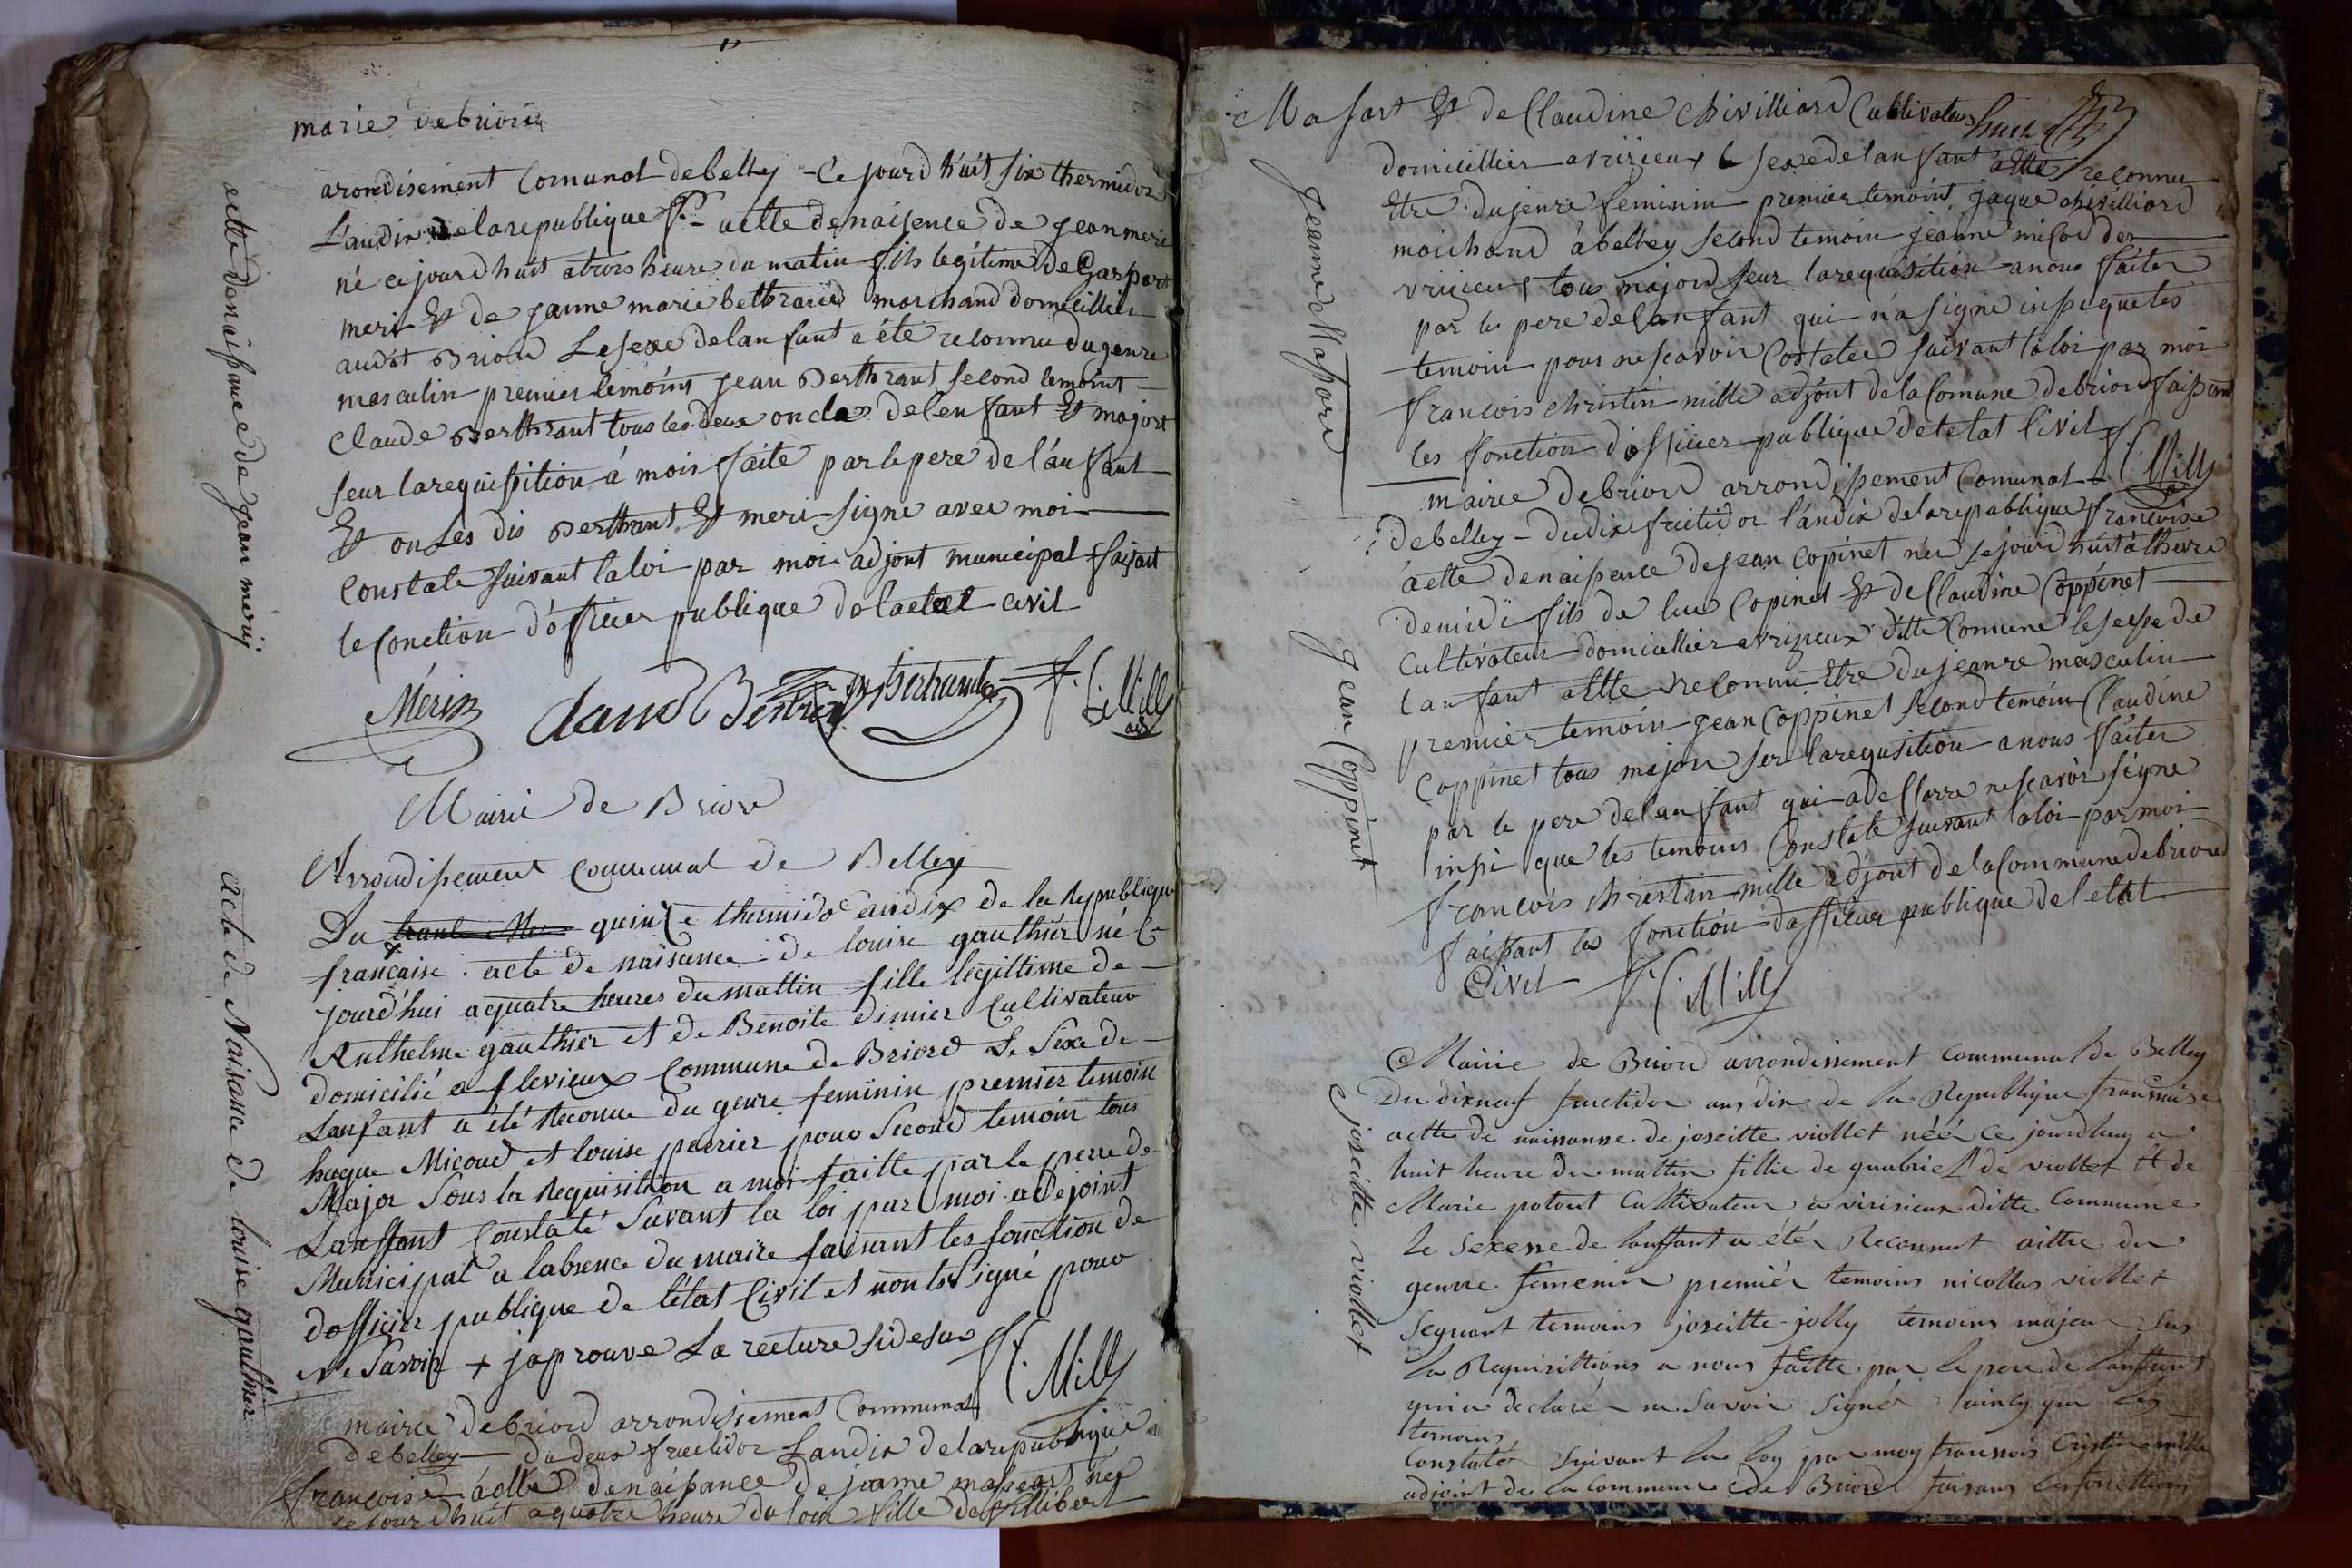 marie debriord
arondisement Comunal debelley - Ce jourd huit six thermidor
L'andix de larepublique f.- actte denaisence de jean meri
né cejourdhuit atrois heure du matin fils legitime de Gaspart
meri Et de janne marie bethrand marchand domicillier
audit Briord Lesexe delanfant a été reconnu dugenre
masculin premier temoins jean Berthrant second temoint
Claude Berthrant tous les deux oncles delenfant Et majort
seur larequisition à mois faite par le pere de l'anfant
Et on Les dis Berthrant Et meri signe avec moi
Constate suivant laloi par moi adjont municipal faisant
le fonction d'officier publique de laetat civil
actte denaissance de jean meriy
Mérin claud Bertran Bertrand F. C. Mille adj
Mairie de Briord
Arrondissement Communal de Belley
Du quinze thermidor an dix de la Republique
française. acte de naisance de louise gauthier né Ce
jourd'hui a quatre heures du mattin fille legittime de
Anthelme gauthier et de Benoite dimier Cultivateur
domicilié a flevieux Commune de Briord Le Sexe de
Lanfant a été Reconue du genre feminin premier temoin
huque Micoud et louise perrier pour Second temoin tous
Major Sous la Requisition a moi faitte par le perre de
Lanffant Constaté Suvant la loi par moi adejoint
Municipal a labsence du maire faisant les fonction de
dofficier publique de l'état Civil et non Signé pour
ne Savoir + japrouve La recture sidesu F. C. Mille
acte de Naisance de louise gauthier
mairie debriord arrondisement Communal
debelley - du deux fructidor Landix delarepublique
francoise actte denaissance de jeanne massart née
cejourdhuit aquatre heure du soir fille de fillibert
Masart Et de Claudine Chivilliard Cultivateur
domicillier avrizieux le sexe delanfant atte reconnu
Etre dujenre feminin premier temoint jaque chivilliard
marchand àbelley second temoin jeanne micoud der
vrizieux tous majord seur larequisition anous faiter
par le pere delanfant qui n'a signe inssequeles
temoin pour nescavoir Costatee suivant laloi par moi
francois christin mille adjont de la Comune debriord faissant
les fonction d'officier publique detetat Civil F. C. Mille
Jeanne Massard
mairie debriord arrondissement Comunal
debelley - dudix fructidor l'andix delarepublique francoise
actte denaissence dejean Copinet née sejourd huit à lheure
demidi fils de luc Copinet Et deClaudine Coppinet
Cultivateur domicillier avrizieux ditte Comune le sexe de
lanfant atte reconnu Etre dujeanre masculin
premier temoin jean Coppinet second temoin Claudine
Coppinet tous majeur ser larequsition anous faiter
par le pere delanfant qui adeClarre nescavoir signe
inssi que les temoins Constate suivant laloi par moi
francois christin mille adjont de la Commune debriord
faissant les fonction dofficier publique del etat
Civil F. C. Mille
Jean Coppinet
Mairie de Briord arrondissement Communal de Belley
Du dixneuf fructidor ans dix de la Republique franssaise
actte de naissanse de joseitte viollet néé ce jourdhuy a
huit heure du mattin fillie de guabriel de viollet Et de
Marie potout Cultivateur a virisieux ditte Commune
le sexese de lanffant a étér Reconnut aittre du
genre femenin premiér temoins nicollas viollet
Seguant temoins joseitte jolly temoins majeur sur
la Requisittions a nous faitte par le pere de lanffant
qui a declaré ne Savoir Signér sainsy que les
temoins
Constatér Suivant la loy par moy franssois Cristin mille
adjoint de la Commune de Briord faisans les fonctions
joseitte viollet